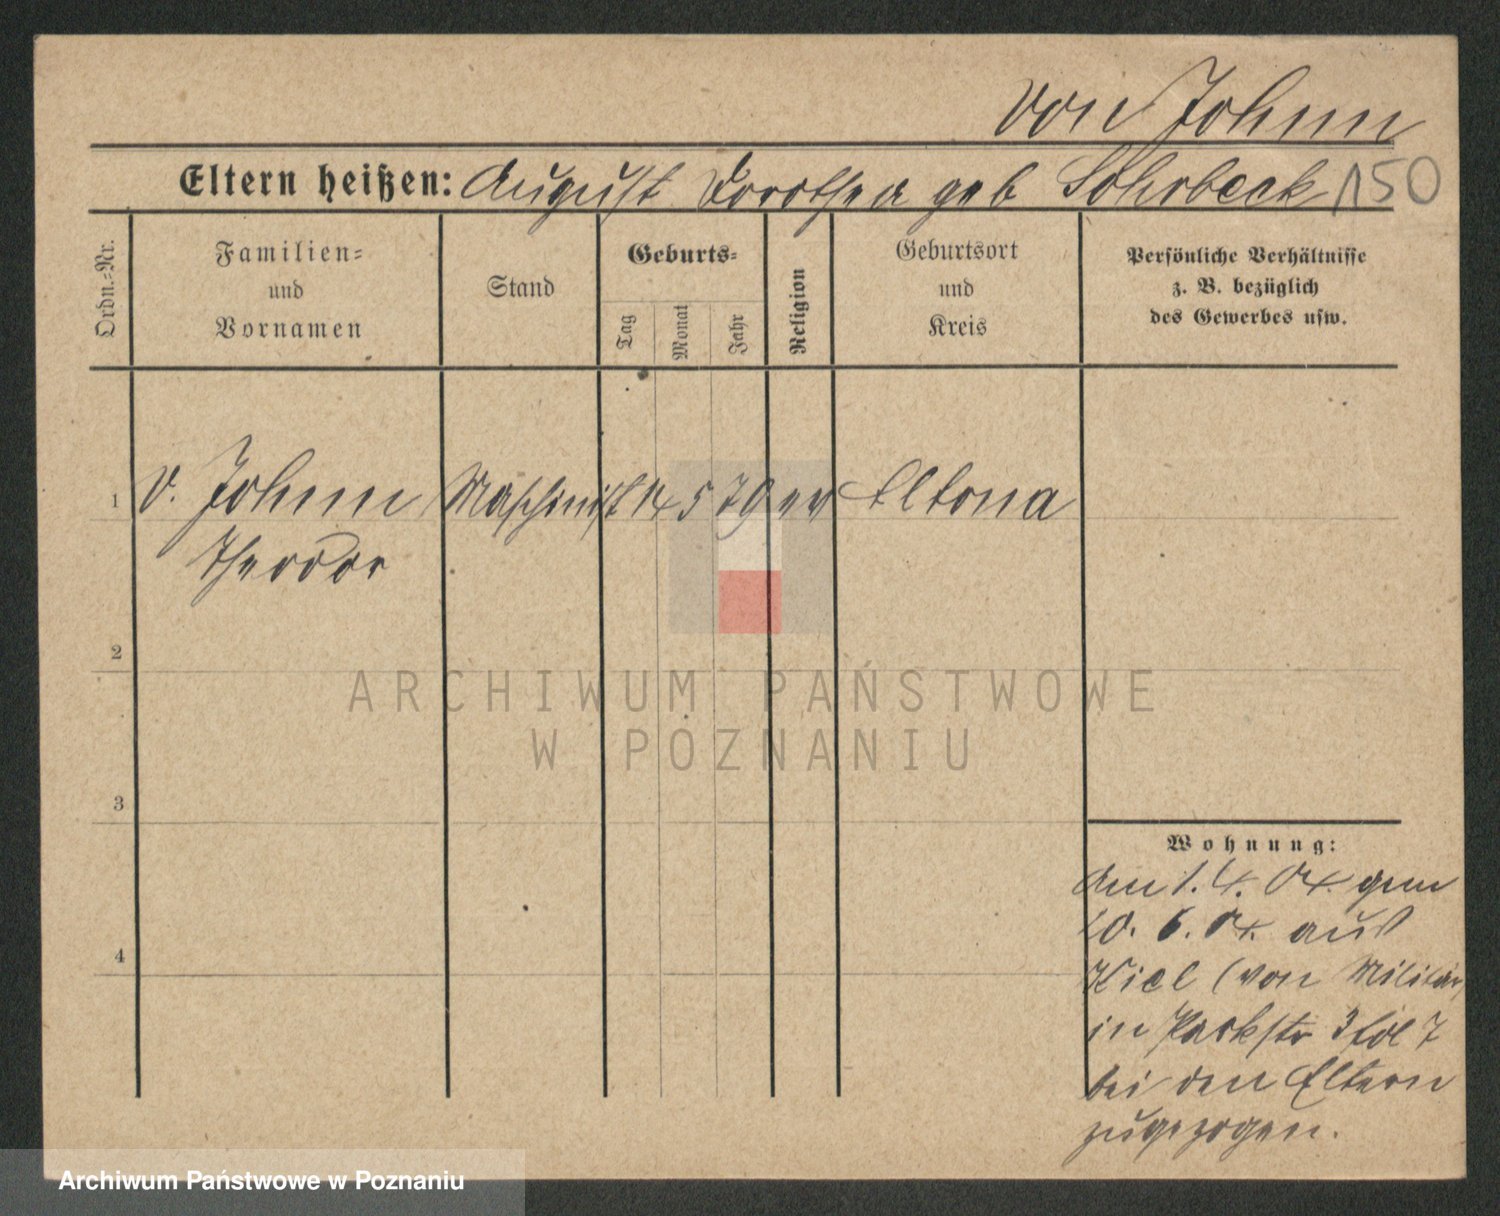 von Johnn
Eltern heißen: August Dorothea geb Sohrbeck 150
Ordn.=Nr.
Familien=
und
Vornamen
Stand
Geburts=
Tag
Monat
Jahr
Religion
Geburtsort
und
Kreis
Persönliche Verhältnisse
z. B. bezüglich
des Gewerbes usw.
1 v. Johnn Maschinist 14 5 79 ev Altona
Theodor
2
ARCHIWUM PAŃSTWOWE
W POZNANIU
3
4
Wohnung:
Am 1. 4. 04. gem
10. 6. 04. aus
Kiel (von Militär
in Parkstr 7
bei den Eltern
zugezogen.
Archiwum Państwowe w Poznaniu